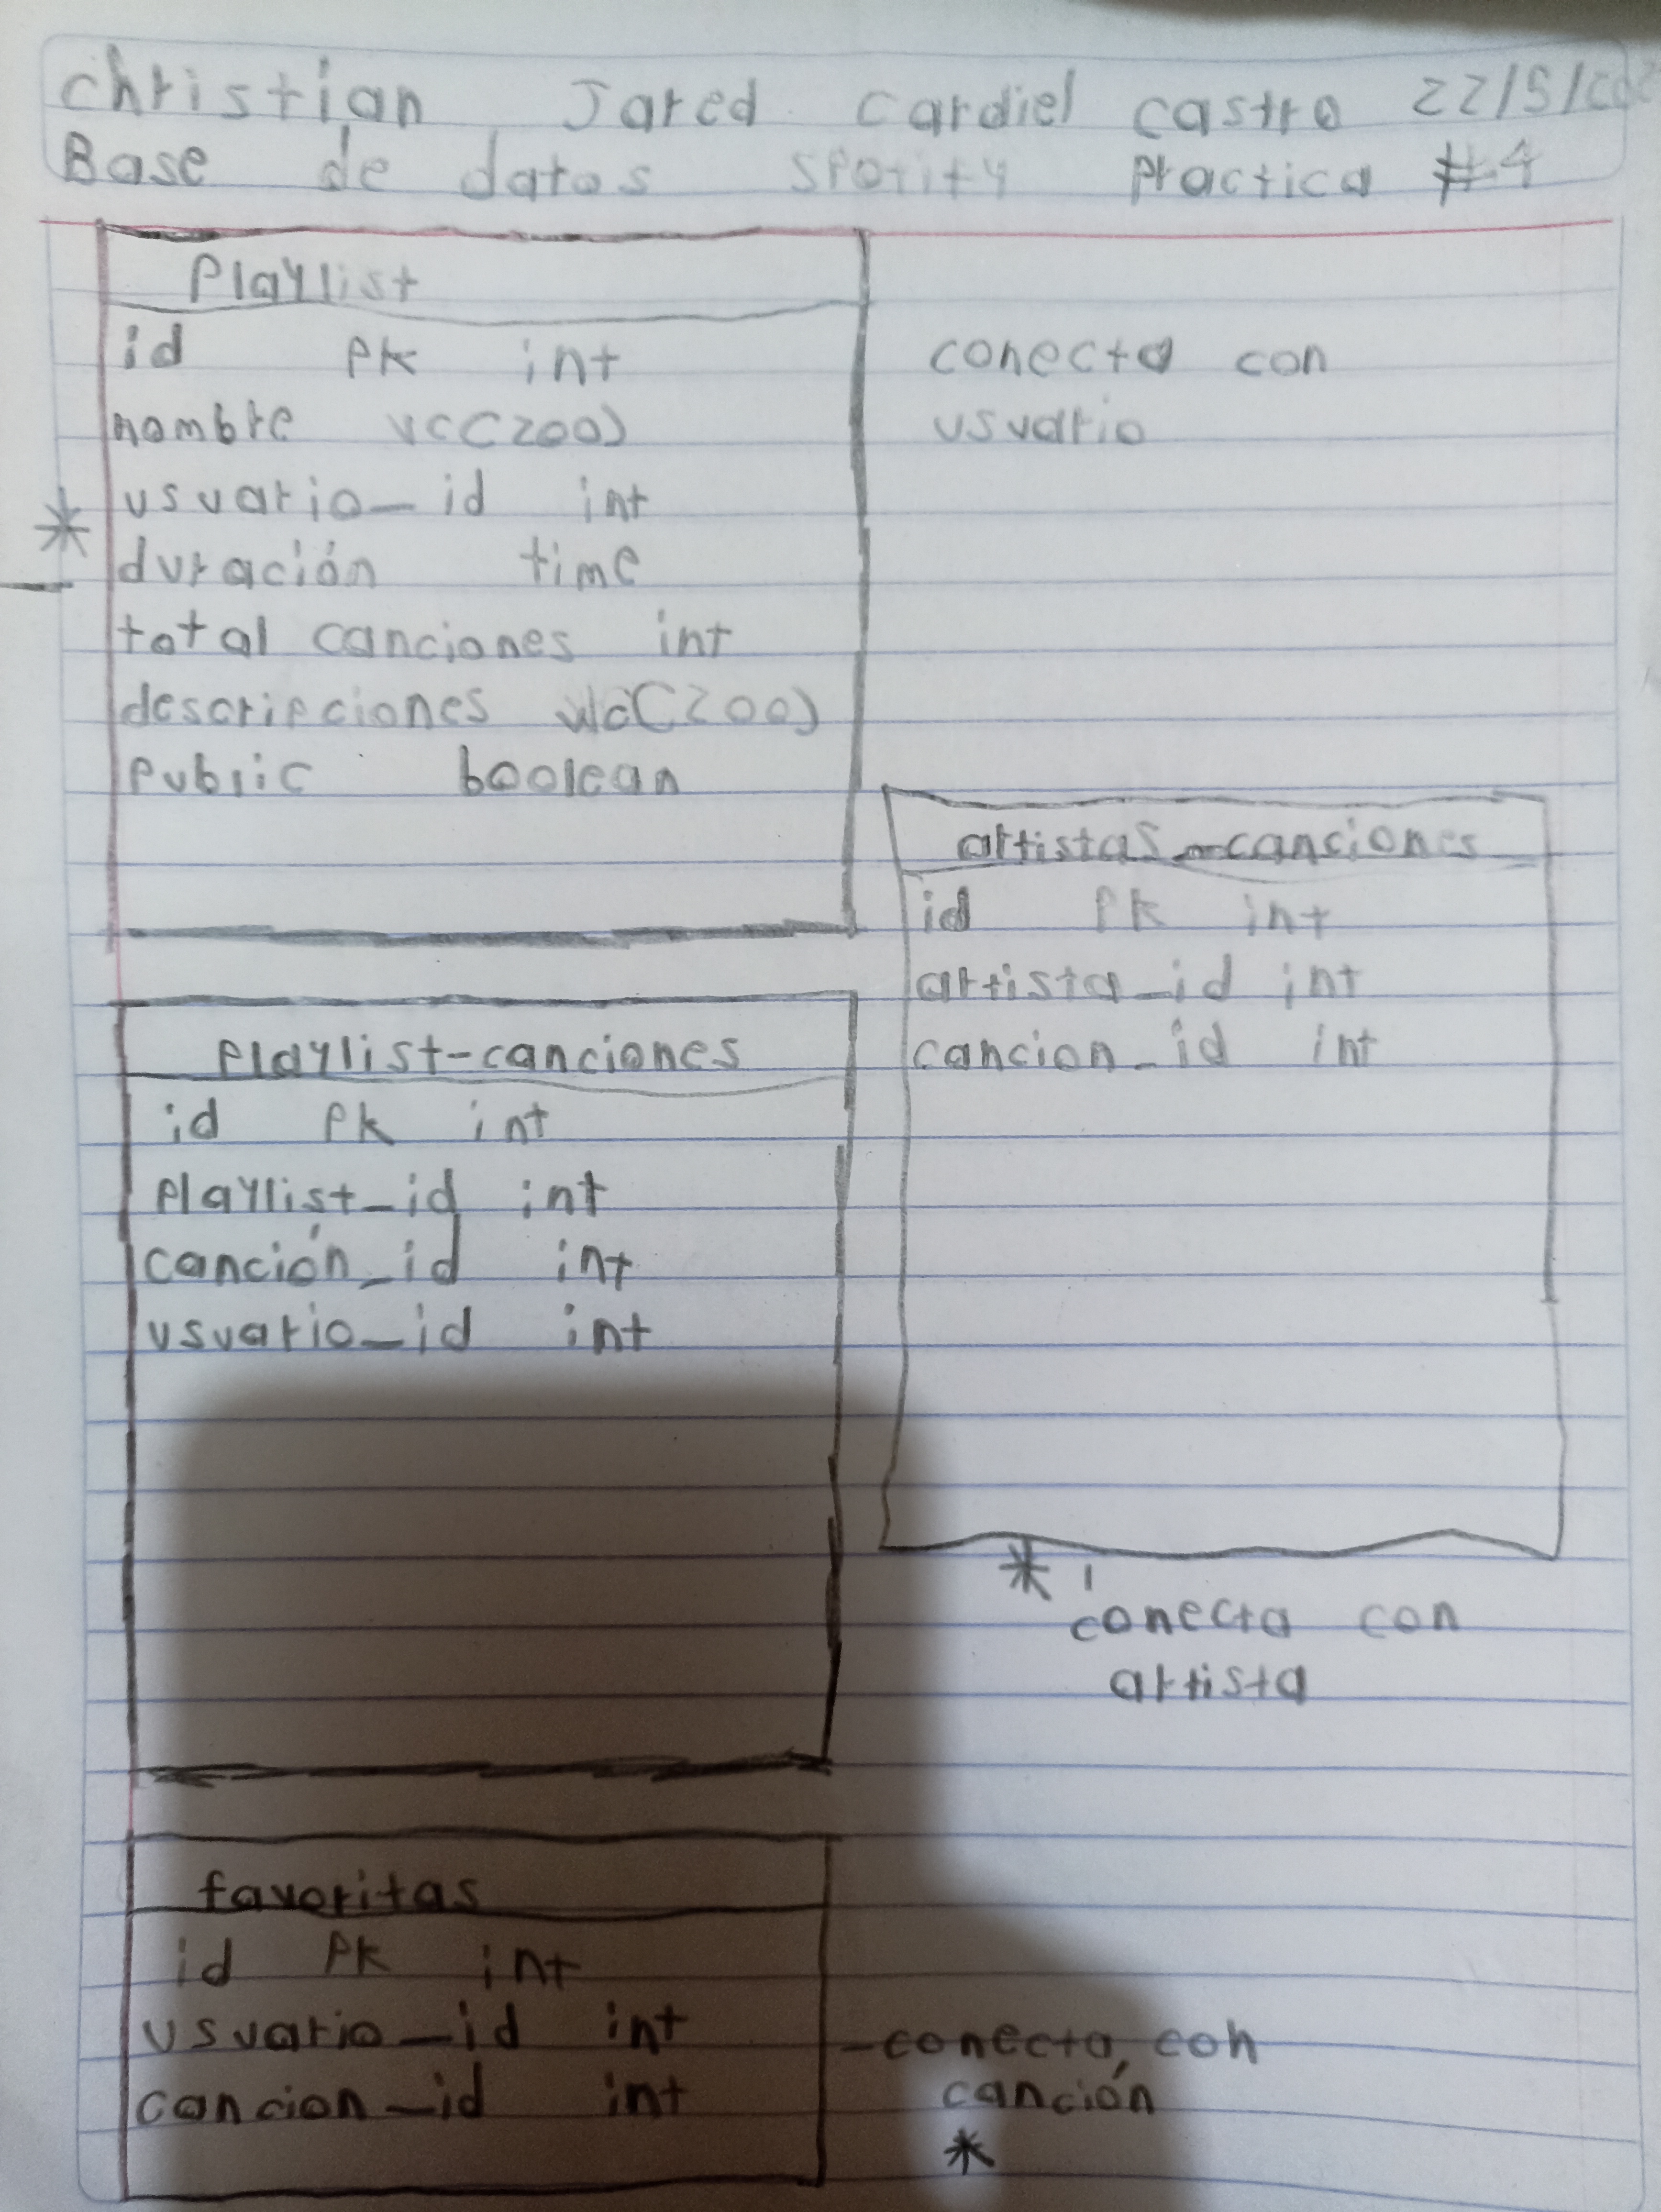 Christian Jared Cardiel Castro 22/5/202
Base de datos Spotify Practica #4
Playlist
id PK int
nombre vc(200)
usuario_id int
duración time
total canciones int
descripciones vc(200)
Public boolean
conecta con
usuario
*
artistas_canciones
id PK int
artista_id int
cancion_id int
* conecta con
artista
Playlist-canciones
id PK int
Playlist_id int
canción_id int
usuario_id int
favoritas
id PK int
usuario_id int
cancion_id int
-conecta con
canción
*